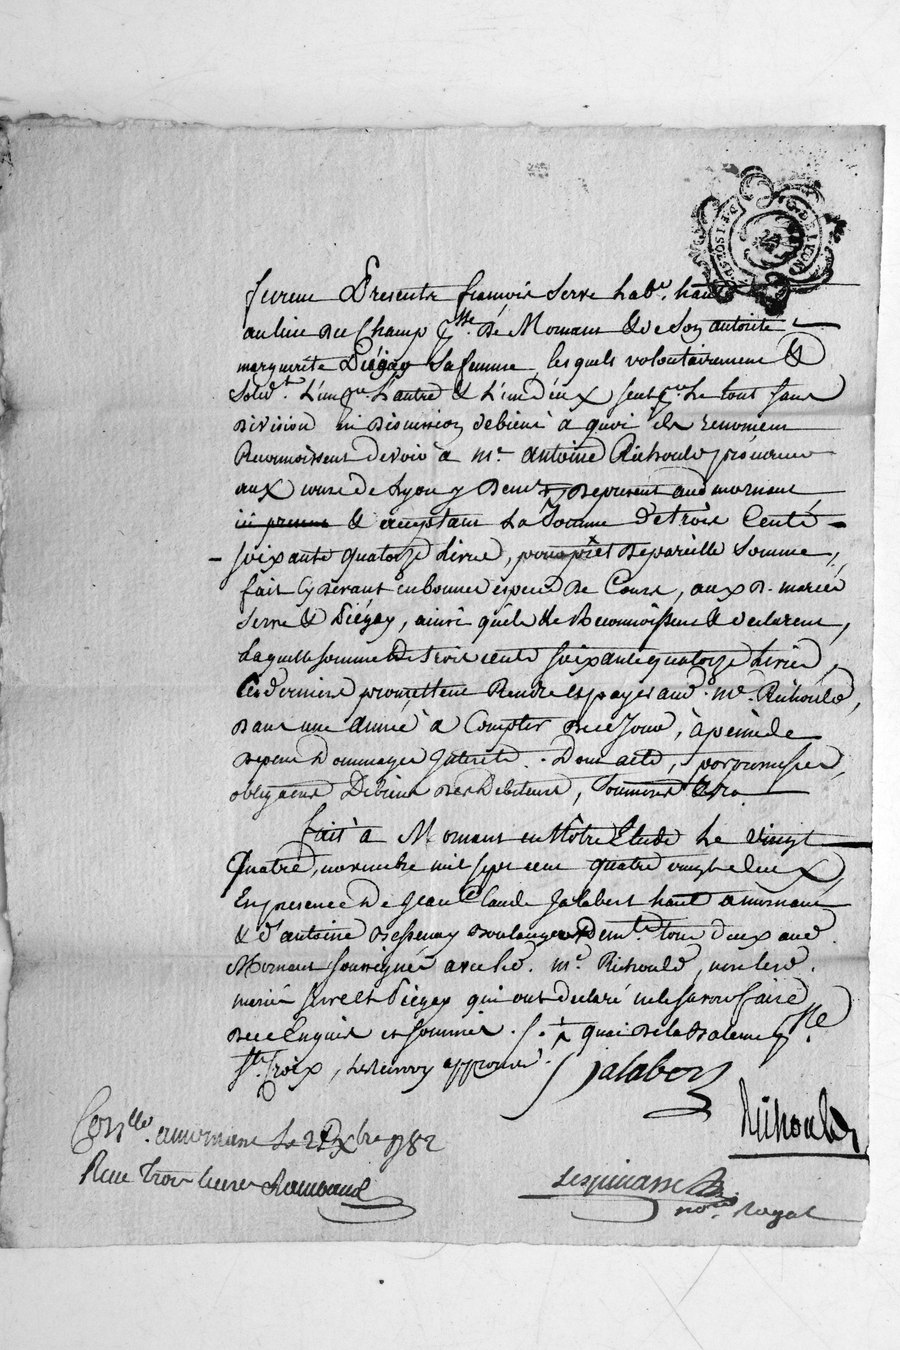 G. DE LYON
furent Presents françois Serre hab.t hant
au lieu du Champ p.sse De Mornant & de Son autorité
marguerite Piégay Sa femme, lesquels volontairement &
Solid.t L'un p.r L'autre & L'un d'eux seul p.r Le tout sans
Division ni Discussion de biens a quoi ils renoncent
Reconnoissent devoir à m.e antoine Richoud procureur
aux cours de Lyon y Dem.t de present aud mornant
ici present & acceptant La Somme De trois Cents
soixante quatorze Livres, pour prêt De pareille Somme
fait Cy devant en bonnes espèces De Cours, aux d. mariés
Serre & Piégay, ainsi qu'ils le Reconnoissent & declarent,
Laquelle somme De trois cents soixante quatorze Livres,
Ces derniers promettent Rendre et payer aud. m.e Richoud,
Dans une année à Compter De ce Jour, à peine de
Depens Dommages Interêts. Dont acte, par promesses,
obligations De biens Des debiteurs, Soumissions &ra
fait à Mornant en Nôtre Etude Le vingt
quatre, novembre mil sept cent quatre vingt deux
En presence De Jean Claude Jalabert hant a mornant
& d'antoine Bessenay Boulanger Dem.t tous deux aud.
Mornant soussignés avec led. m.e Richoud, non lesd.
mariés Serre & Piégay qui ont declaré ne le savoir faire
De ce Enquis et sommés. quai De la Baleine p.sse
S.te Croix, Le Renvoy approuvé.
Jalabert
Richoud
Con.llé a mornant Le 2 Xbre 1782
Reçu trois livres Rambaud
Lespinasse
no.re Royal